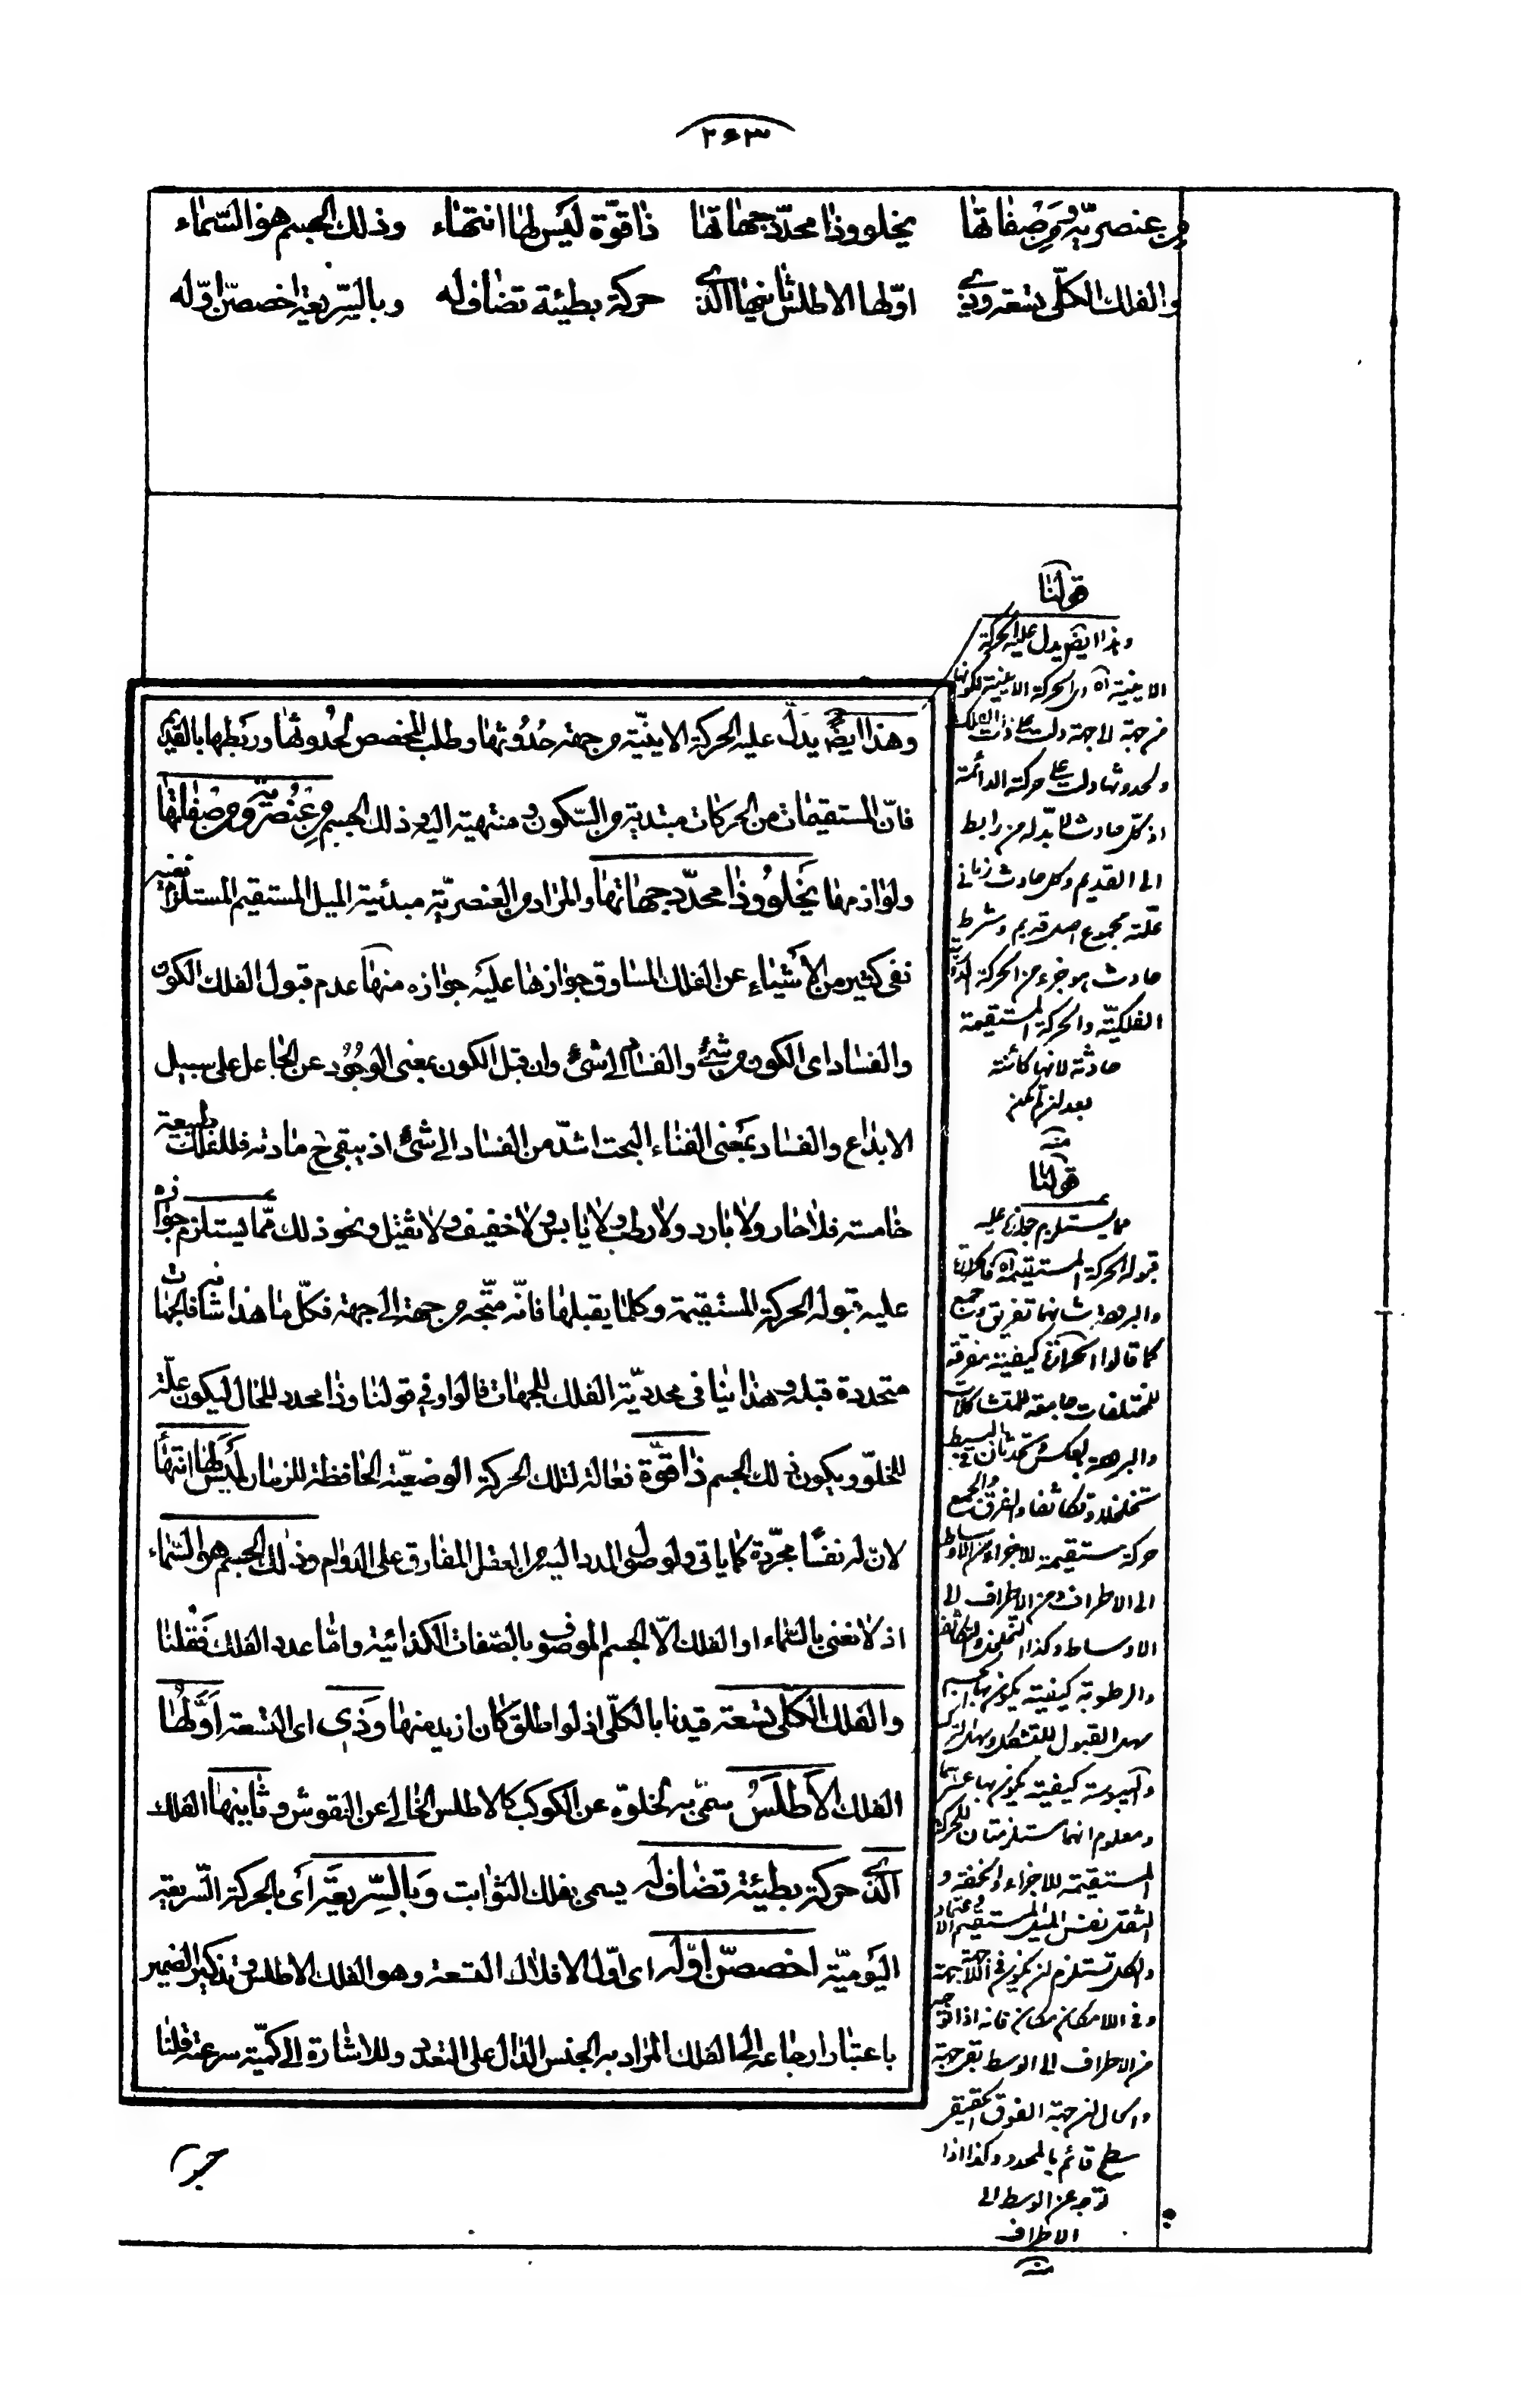 ٢٦٣
من عنصريّة ومن صفاتها يخلو وذا محدّد جهاتها ذا قوّة ليس لها انتهاء وذلك الجسم هو السّماء
والفلك الكلّي تسعة وذي اوّلها الاطلس ثانيها الذي حركة بطيئة تضاف له وبالسّريعة اخصصن اوّله
وهذا ايضا يدلّ عليه الحركة الاينيّة من جهة حدوثها وطلب المخصص لحدوثها وربطها بالقديم
فانّ المستقيمات من الحركات مبتدية من السّكون ومنتهية اليه وذلك الجسم من عنصريّة ومن صفاتها
ولوازمها يخلو وذا محدّد جهاتها والمراد من العنصريّة مبدئية الميل المستقيم المستلزم نفيه
نفي كثير من الأشياء عن الفلك المساوق جوازها عليه جوازه منها عدم قبول الفلك الكون
والفساد اى الكون من شئ والفساد الى شئ وان قبل الكون بمعنى الوجود عن الجاعل على سبيل
الابداع والفساد بمعنى الفناء البحت اشدّ من الفساد الى شئ اذ يبقى ح مادته فللفلك طبيعة
خامسة فلا حار ولا بارد ولا رطب ولا يابس ولا خفيف ولا ثقيل ونحو ذلك ممّا يستلزم جوازه
عليه قبوله الحركة المستقيمة وكلما يقبلها فانّه متّجه من جهة الى جهة فكلّ ما هذا شانه فالجهات
متحددة قبله وهذا ينافى محدديّة الفلك للجهات قالوا وفي قولنا وذا محدد للحال ليكون علّة
للخلوّ ويكون ذلك الجسم ذا قوّة فعالة لتلك الحركة الوضعيّة الحافظة للزمان ليس لها انتهاء
لان له نفسا مجرّدة كما ياتى ولوصول المدد اليه من العقل المفارق على الدوام وذلك الجسم هو السّماء
اذ لا نعنى بالسّماء او الفلك الّا الجسم الموصوف بالصّفات الكذائية وامّا عدد الفلك فقلنا
والفلك الكلّي تسعة قيدنا بالكلّي اذ لو اطلق كان ازيد منها وذي اى التسعة اوّلها
الفلك الأطلس سمّى به لخلوّه عن الكوكب كالاطلس الخالى عن النقوش وثانيها الفلك
الذي حركة بطيئة تضاف له يسمى بفلك الثوابت وبالسّريعة اى بالحركة السّريعة
اليوميّة اخصصن اوّله اى اوّل الافلاك التسعة وهو الفلك الاطلس وتذكير الضمير
باعتبار ارجاعه الى الفلك المراد به الجنس الدّال على التعدد وللاشارة الى كمّية سرعته قلنا
قولنا
وهذا ايضا يدل عليه الحركة
الاينية اه اى الحركة الاينية لكونها
من جهة الى جهة دلت على ذات الفلك
ولحدوثها دلت على حركته الدائمة
اذ كل حادث لا بدّ له من رابط
الى القديم وكل حادث زمانى
علّته مجموع اصل قديم وشرط
حادث هو جزء من الحركة
الفلكيّة والحركة المستقيمة
حادثة لانها كائنة
بعد ان لم تكن
منه
قولنا
مما يستلزم جوازه عليه
قبوله الحركة المستقيمة اه فالحرارة
والبرودة شانهما تفريق وجمع
كما قالوا الحرارة كيفية مفرقة
للمختلفات جامعة للمتشاكلات
والبرودة بالعكس وتحدثان في البسيط
تخلخلا وتكاثفا والفرق والجمع
حركة مستقيمة للاجزاء من الاوساط
الى الاطراف ومن الاطراف الى
الاوساط وكذا التخلخل والتكاثف
والرطوبة كيفية يكون بها الجسم
سهل القبول للتشكل وسهل الترك
واليبوسة كيفية يكون بها عسرهما
ومعلوم انهما مستلزمتان للحركة
المستقيمة للاجزاء والخفة و
الثقل نفس الميل المستقيم
والكل تستلزم ان يكون فى اللاجهة جهة
وفى اللامكان مكان فانه اذا توجه
من الاطراف الى الوسط بقى جهة
والحال ان جهة الفوق الحقيقى
سطح قائم بالمحدد وكذا اذا
توجه عن الوسط الى
الاطراف
منه